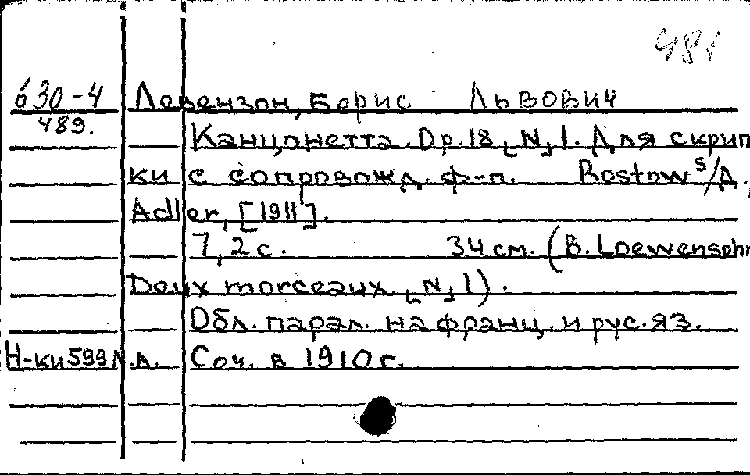 481
630-4 Левензон, Борис Львович
489.
Канцонетта. Op.18, [N]1. Для скрип
ки с сопровожд. ф-п. Rostow s/Д.,
Adler, [1911].
7, 2 с. 34 см. (B. Loewensohn
Deux morceaux. [N]1).
Обл. парал. на франц. и рус. яз.
Н-ки 599 Л.Л. Соч. в 1910 г.